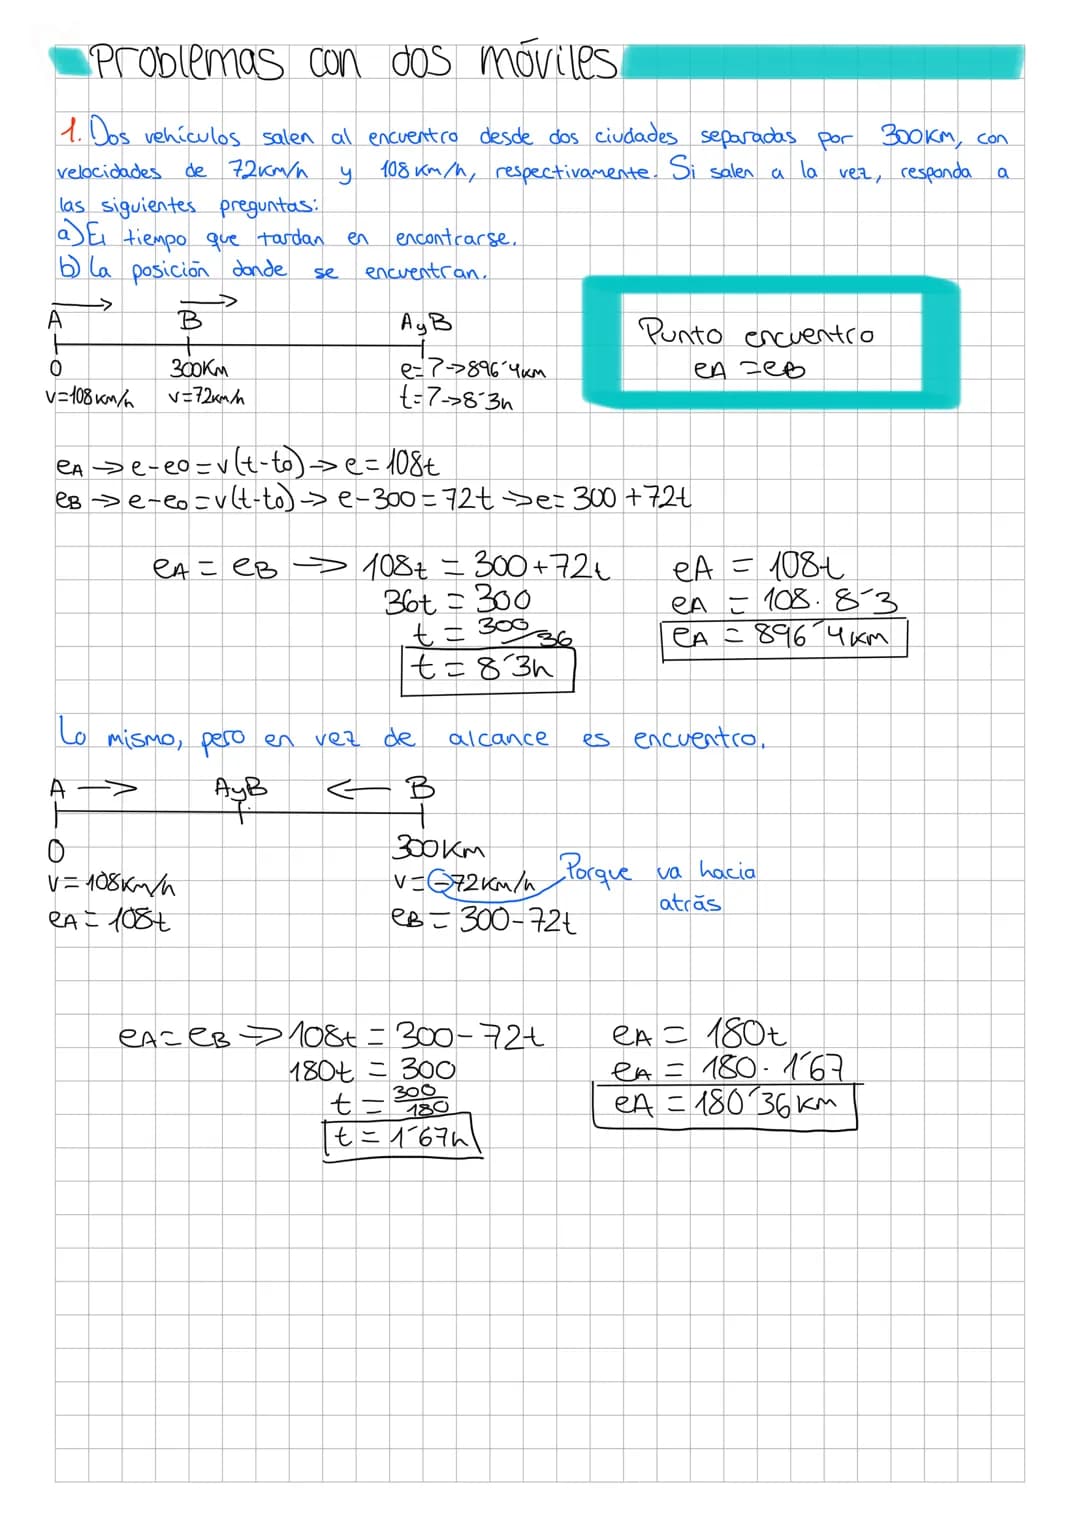 Problemas con dos móviles
1. Dos vehículos salen al encuentro desde dos ciudades separadas por 300KM, con
velocidades de 72KM/h y 108 KM/h, respectivamente. Si salen a la vez, responda a
las siguientes preguntas:
a) El tiempo que tardan en encontrarse.
b) La posición donde se encuentran.
A B AyB
0 300KM e=?->896´4KM
v=108KM/h v=72KM/h t=?->8´3h
Punto encuentro
eA = eB
eA -> e-eo = v(t-to) -> e = 108t
eB -> e-eo = v(t-to) -> e-300 = 72t -> e= 300 +72t
eA = eB -> 108t = 300+72t
36t = 300
t = 300/36
t = 8´3h
eA = 108t
eA = 108. 8´3
eA = 896´4KM
Lo mismo, pero en vez de alcance es encuentro.
A -> AyB <- B
0 300KM
v= 108KM/h v=-72KM/h Porque va hacia
atrás
eA = 108t eB = 300-72t
eA=eB => 108t = 300-72t
180t = 300
t = 300/180
t = 1´67h
eA = 180t
eA = 180. 1´67
eA = 180´36 KM